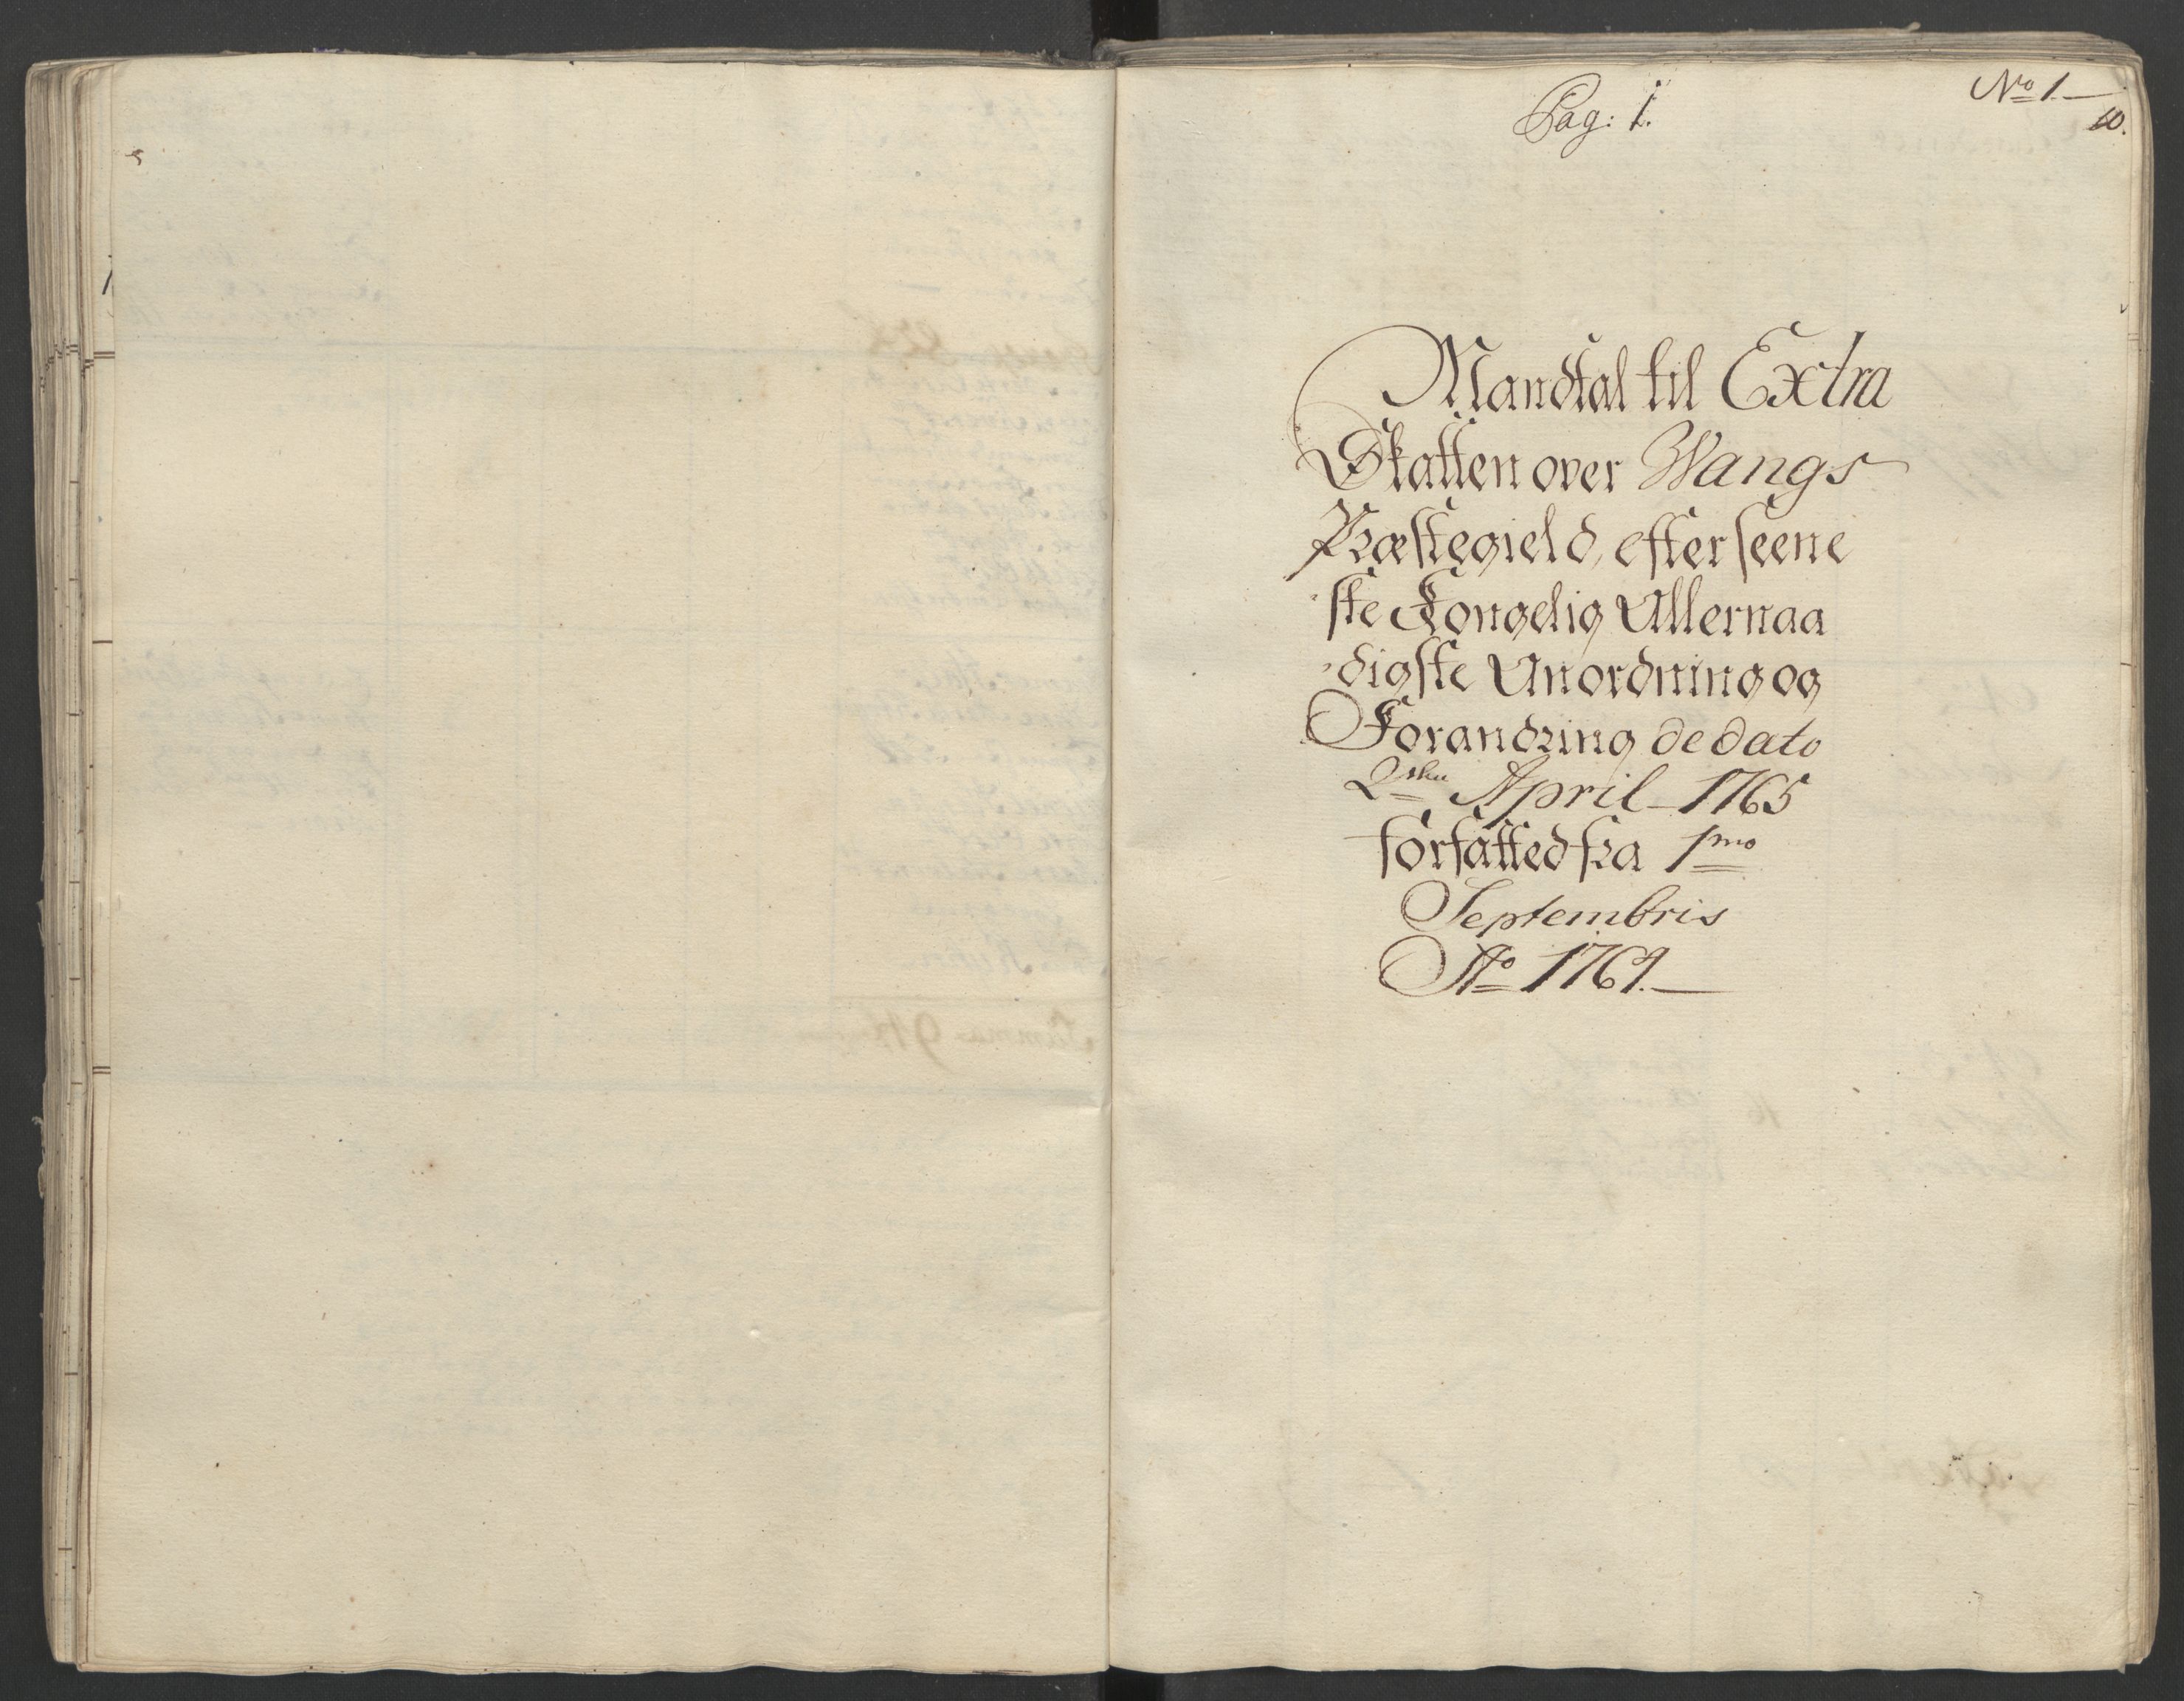 Pag: 1.
No 1.
10.
Mandtal til Extra
Skatten over Wangs
Præstegield, efter seene
ste Kongelig Allernaa
digste Anordning og
Forandring de dato
2den April 1765
forfatted fra 1mo
Septembris
Ao 1764.